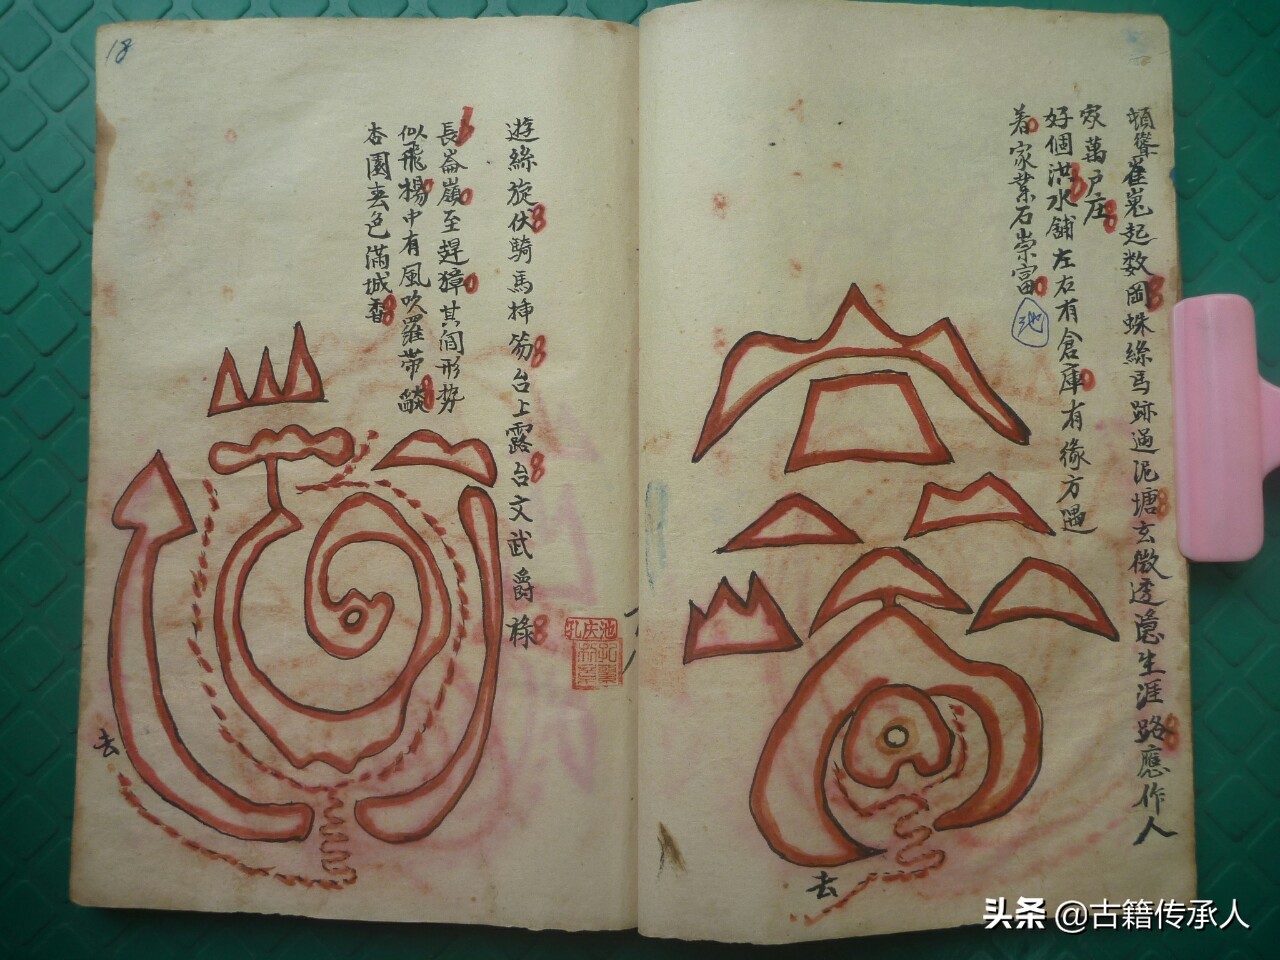 頓聳崔嵬起数岡蛛絲馬跡過泥塘玄微透隱生涯路應作人
家萬戶庄
好個洪水舖左右有倉庫有緣方遇
着家業石崇富
池
去
18
遊絲旋伏騎馬挿笏台上露台文武爵祿
長崙嶺至趕獐其間形势
似飛楊中有風吹羅带
杏園春色滿城香
去
池庆孔
头条 @古籍传承人